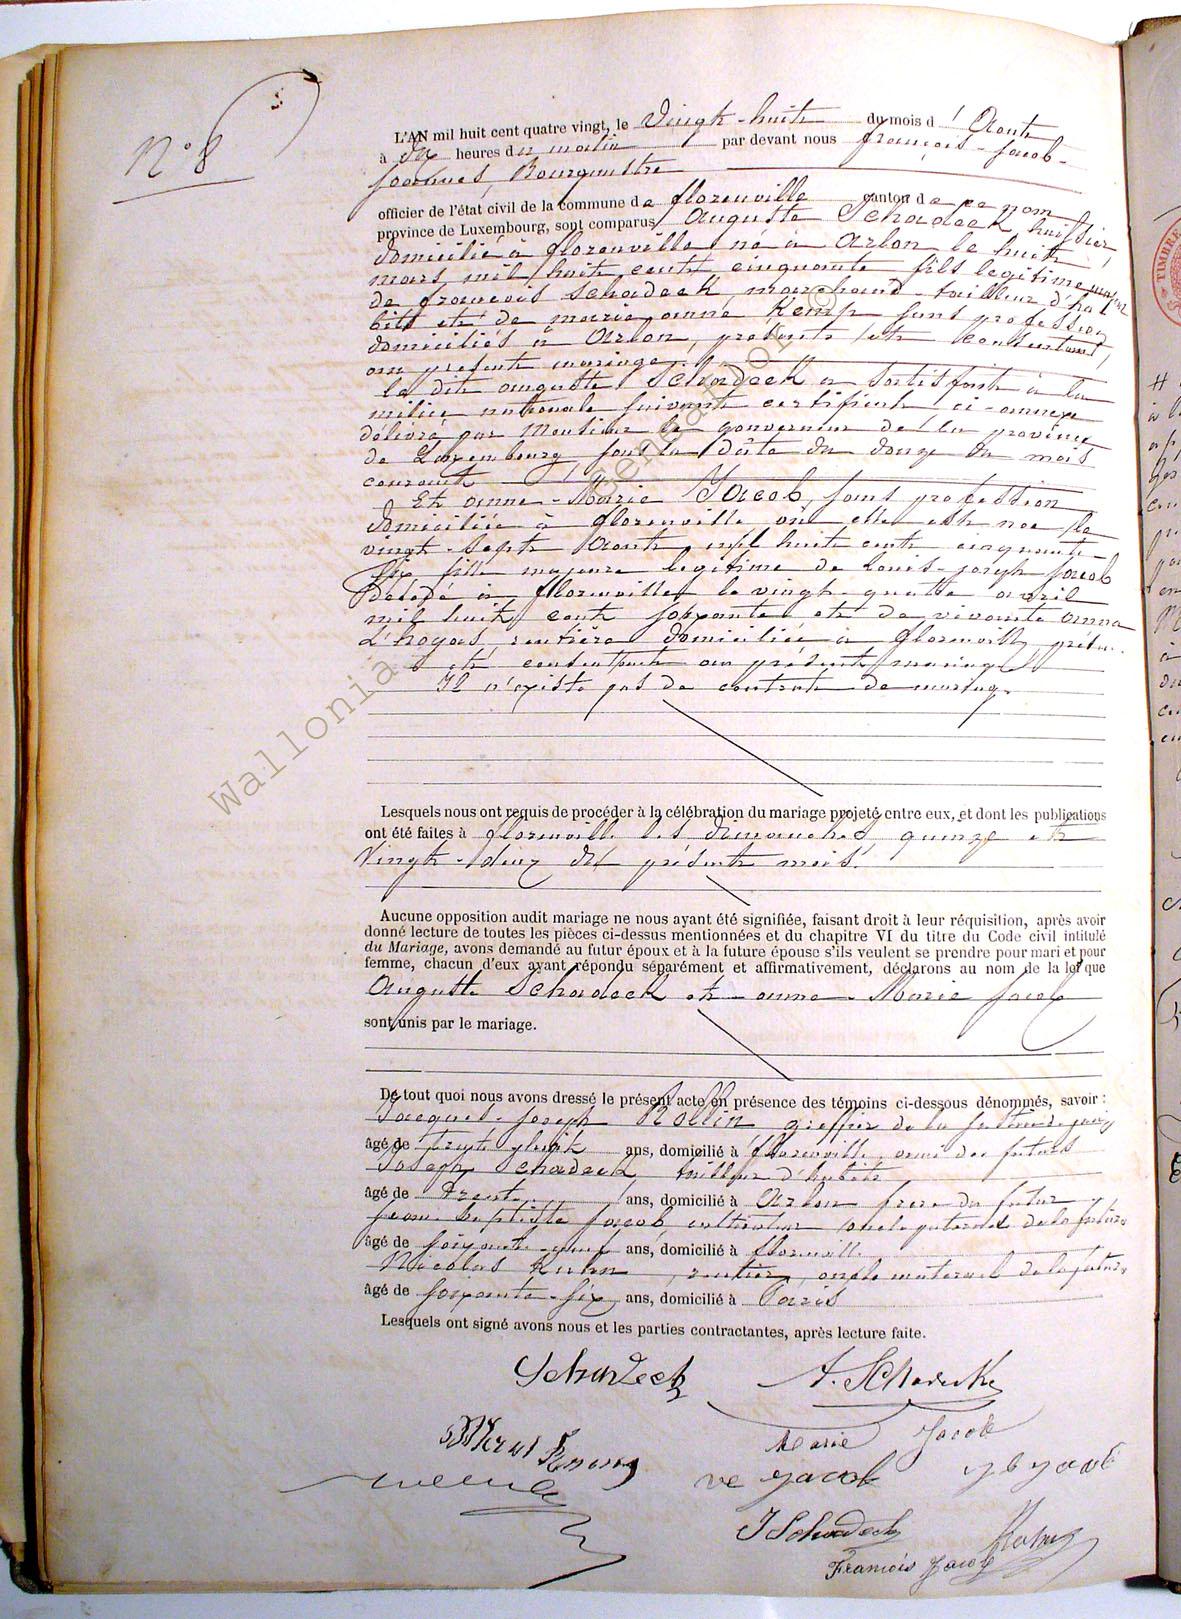 N° 8
L'AN mil huit cent quatre vingt, le Vingt-huit du mois d'Août
à dix heures du matin par devant nous françois-Jacob-
Joannes, Bourgmestre
officier de l'état civil de la commune de florenville canton de ce nom
province de Luxembourg, sont comparus Auguste Schadeck, huissier,
domicilié à florenville né à Arlon le huit
mars mil huit cent cinquante fils légitime majeur
de françois Schadeck, marchand-tailleur d'ha
bits et de marie anne Kemp sans profession
domiciliés à Arlon, présents et consentants
au présent mariage.
le dit auguste Schadeck a satisfait à la
milice nationale suivant certificat ci-annexé
délivré par Monsieur le gouverneur de la province
de Luxembourg, sous la date du douze du mois
courant
Et anne-Marie Jacob, sans profession
domiciliée à florenville où elle est née le
vingt-sept Août mil huit cent cinquante-
six fille majeure légitime de Louis-joseph Jacob
décédé à florenville le vingt-quatre avril
mil huit cent soixante et de vivante anna
L'hoyas, rentière domiciliée à florenville présen
et consentante au présent mariage
Il n'existe pas de contrat de mariage.
Lesquels nous ont requis de procéder à la célébration du mariage projeté entre eux, et dont les publications
ont été faites à florenville les dimanches quinze et
Vingt-deux du présent mois.
Aucune opposition audit mariage ne nous ayant été signifiée, faisant droit à leur réquisition, après avoir
donné lecture de toutes les pièces ci-dessus mentionnées et du chapitre VI du titre du Code civil intitulé
du Mariage, avons demandé au futur époux et à la future épouse s'ils veulent se prendre pour mari et pour
femme, chacun d'eux ayant répondu séparément et affirmativement, déclarons au nom de la loi que
Auguste Schadeck et anne-Marie Jacob
sont unis par le mariage.
De tout quoi nous avons dressé le présent acte en présence des témoins ci-dessous dénommés, savoir :
Jacques-Joseph Rollin greffier de la justice de paix
âgé de trente ans, domicilié à florenville, ami des futurs
Joseph Schadeck tailleur d'habits
âgé de trente ans, domicilié à Arlon frere du futur
jean-baptiste Jacob, cultivateur oncle paternel de la future
âgé de soixante-neuf ans, domicilié à florenville
Nicolas Kuhn, rentier, oncle maternel de la future
âgé de soixante-six ans, domicilié à Paris
Lesquels ont signé avons nous et les parties contractantes, après lecture faite.
Schadeck A. Schadeck
Marie Jacob
ve Jacob J b Jacob
J Schadeck
François Jacob
Wallonia GenBaDoi ©
TIMBRE